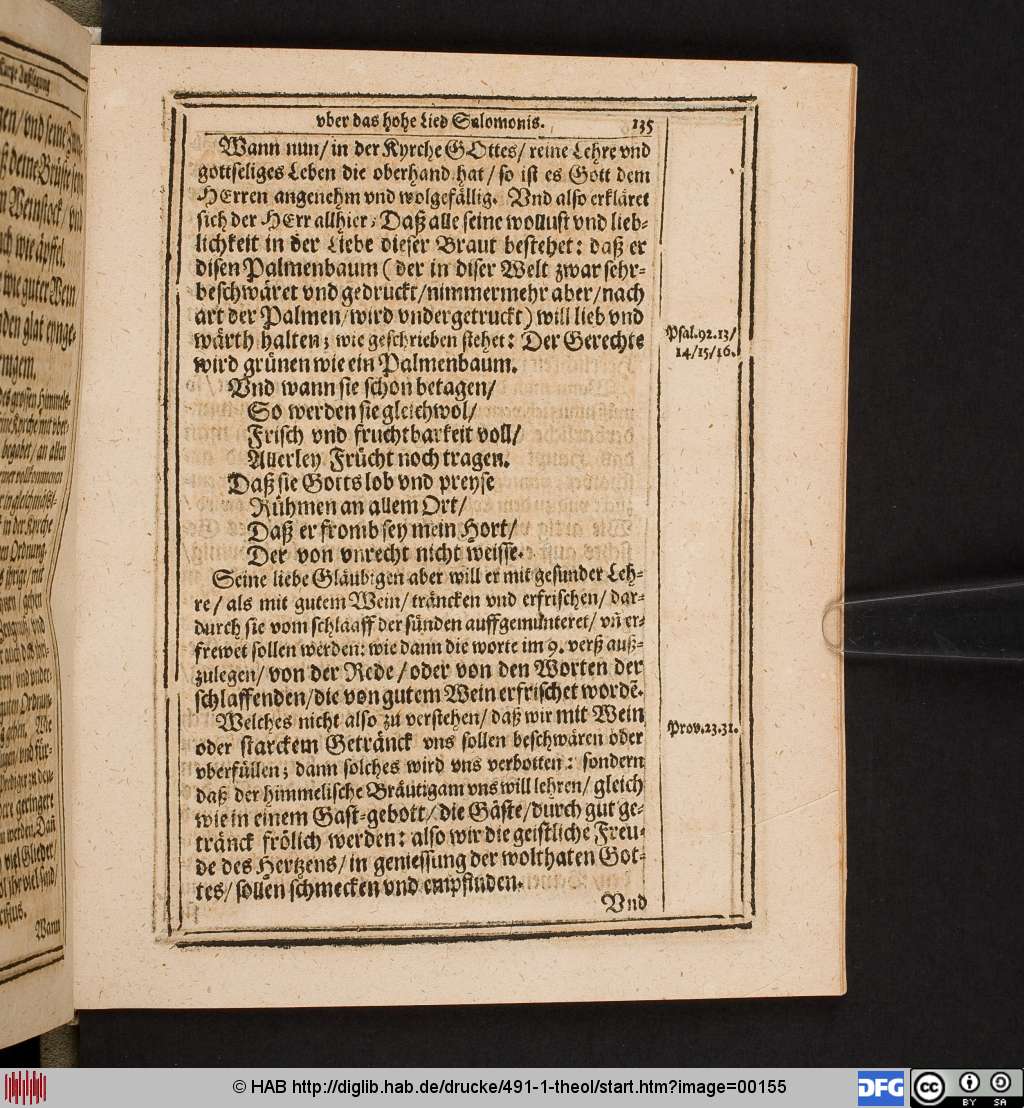 Kurtze Außlegung
gen/ vnd seine
deine Brüste seyn
Weinstock/ vnd
nach wie äpffel.
wie guter Wein
des grossen Himmels-
begabet/ an allen
vollkommenen
in der Kyrche
Ordnung.
mit
gehen
vnd
guten Ordnun-
gehen. Wie
vnd für-
Prediger zu den-
geringere
werden. Dañ
viel Glieder/
Wann
vber das hohe Lied Salomonis. 135
Wann nun/ in der Kyrche GOttes/ reine Lehre vnd
gottseliges Leben die oberhand hat/ so ist es Gott dem
HErren angenehm vnd wolgefällig. Vnd also erkläret
sich der HErr allhier; Daß alle seine wollust vnd lieb-
lichkeit in der Liebe dieser Braut bestehet: daß er
disen Palmenbaum (der in diser Welt zwar sehr-
beschwäret vnd gedruckt/ nimmermehr aber/ nach
art der Palmen/ wird vndergetruckt) will lieb vnd
wärth halten; wie geschrieben stehet: Der Gerechte
wird grünen wie ein Palmenbaum.
Psal. 92.13/
14/15/16.
Vnd wann sie schon betagen/
So werden sie gleichwol/
Frisch vnd fruchtbarkeit voll/
Allerley Frücht noch tragen.
Daß sie Gotts lob vnd preyse
Rühmen an allem Ort/
Daß er fromb sey mein Hort/
Der von vnrecht nicht weisse.
Seine liebe Gläubigen aber will er mit gesunder Leh-
re/ als mit gutem Wein/ träncken vnd erfrischen/ dar-
durch sie vom schlaaff der sünden auffgemunteret/ vñ er-
frewet sollen werden: wie dann die worte im 9. verß auß-
zulegen/ von der Rede/ oder von den Worten der
schlaffenden/ die von gutem Wein erfrischet wordē.
Welches nicht also zu verstehen/ daß wir mit Wein
oder starckem Getränck vns sollen beschwären oder
vberfüllen; dann solches wird vns verbotten: sondern
daß der himmelische Bräutigam vns will lehren/ gleich
wie in einem Gast-gebott/ die Gäste/ durch gut ge-
tränck frölich werden: also wir die geistliche Freu-
de des Hertzens/ in geniessung der wolthaten Got-
tes/ sollen schmecken vnd empfinden.
Prov. 23.31.
Vnd
© HAB http://diglib.hab.de/drucke/491-1-theol/start.htm?image=00155
DFG
cc
BY SA